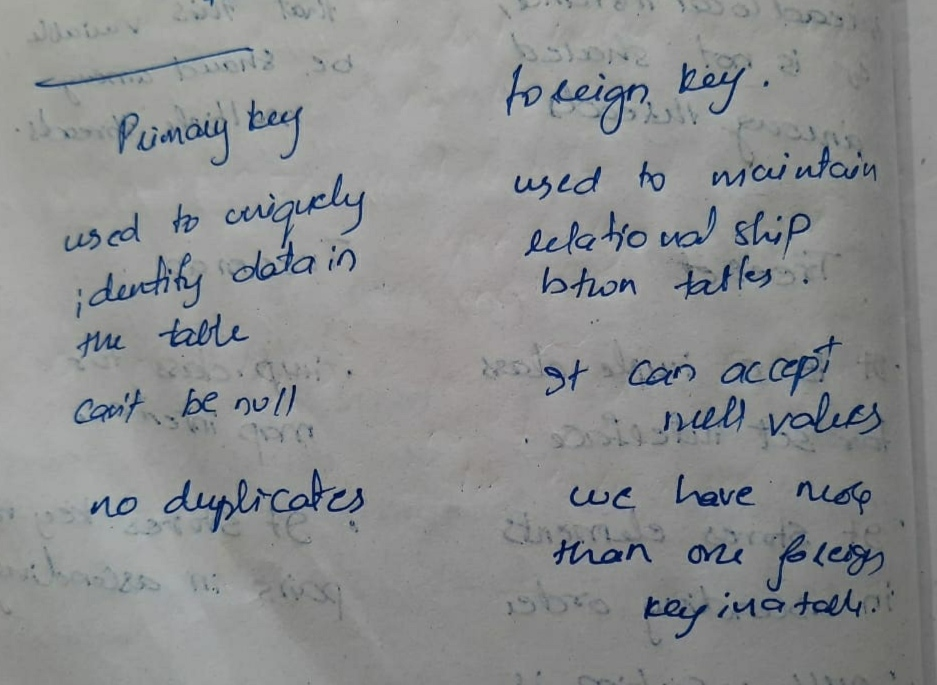 Primary key
used to uniquely
identify data in
the table
can't be null
no duplicates.
foreign key.
used to maintain
relational ship
btwn tables.
It can accept
null values
we have more
than one foreign
key in a table.